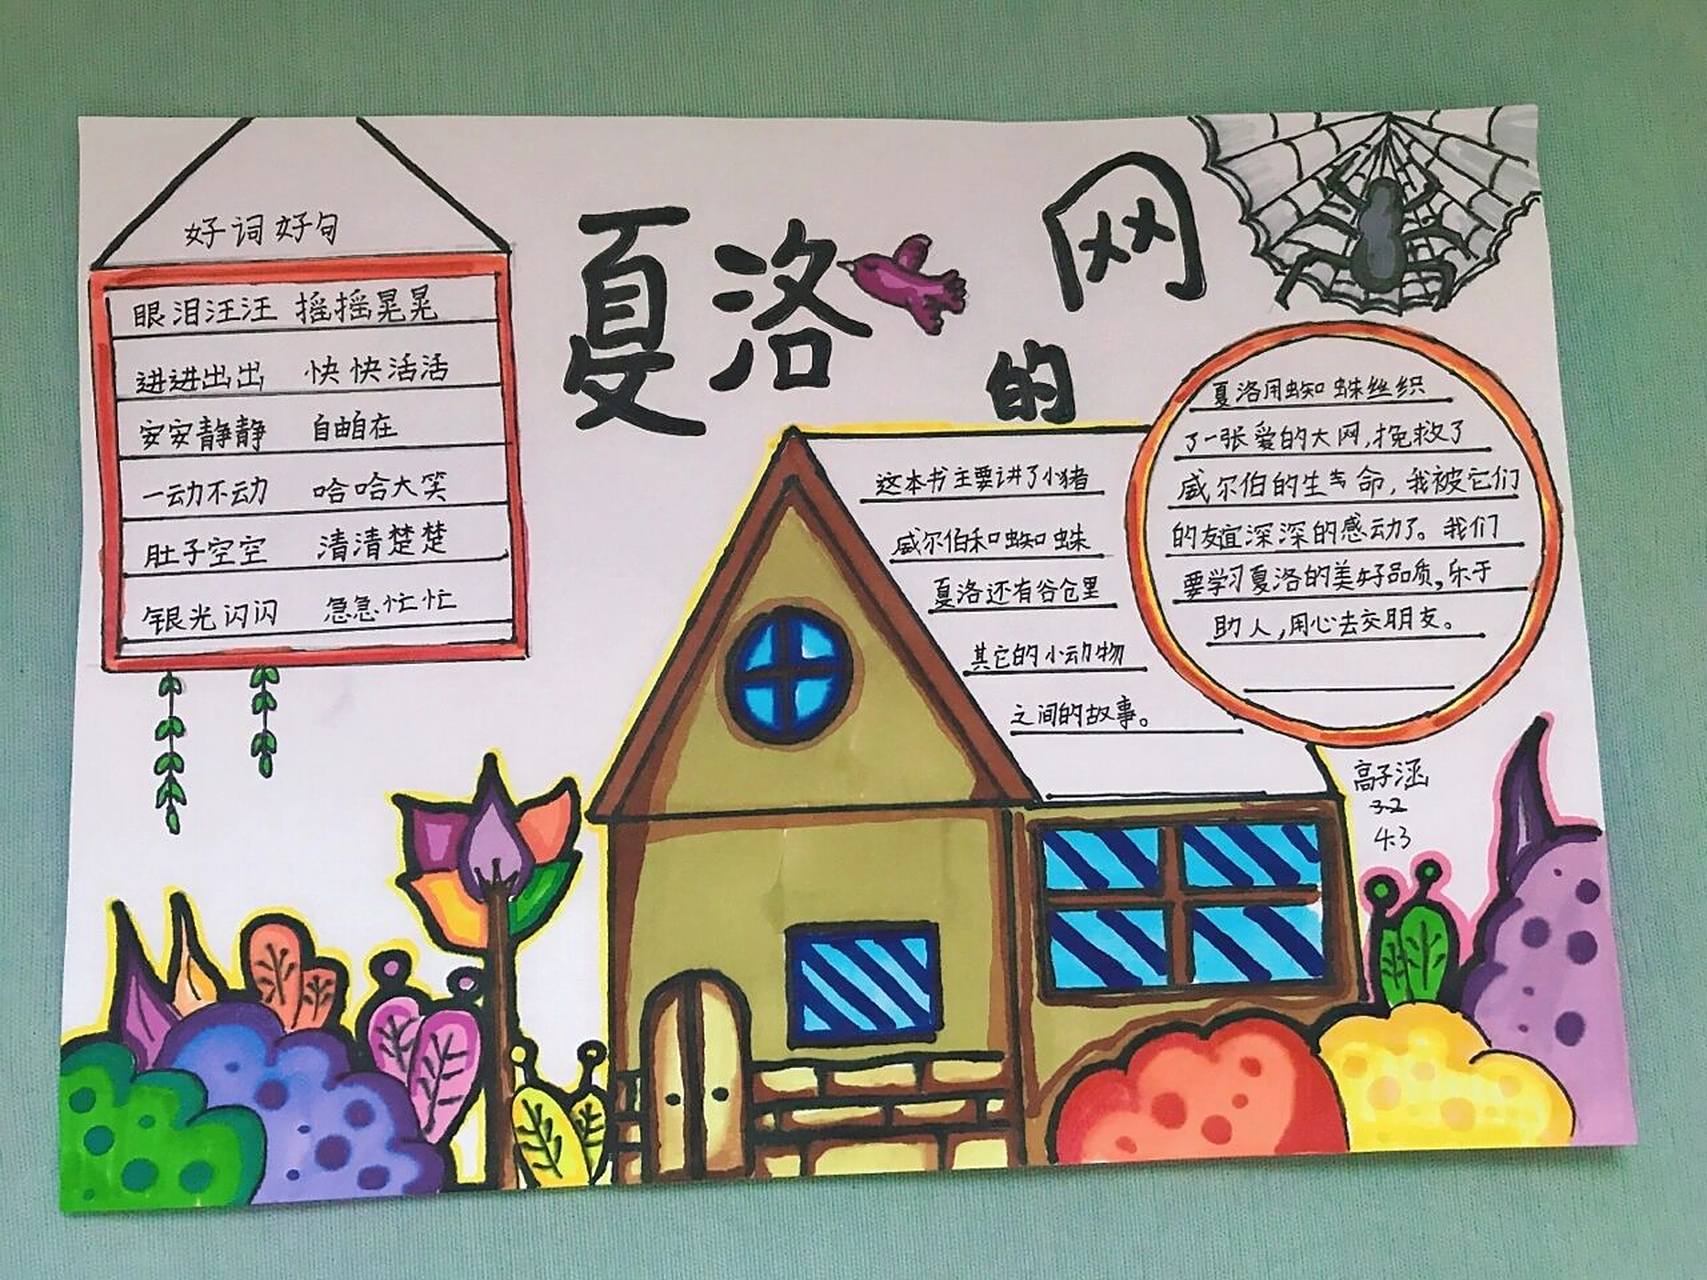 夏洛的网
好词好句
眼泪汪汪 摇摇晃晃
进进出出 快快活活
安安静静 自由自在
一动不动 哈哈大笑
肚子空空 清清楚楚
银光闪闪 急急忙忙
这本书主要讲了小猪
威尔伯和蜘蛛
夏洛还有谷仓里
其它的小动物
之间的故事。
夏洛用蜘蛛丝织
了一张爱的大网,挽救了
威尔伯的生命,我被它们
的友谊深深的感动了。我们
要学习夏洛的美好品质,乐于
助人,用心去交朋友。
高子涵
3.2
4.3